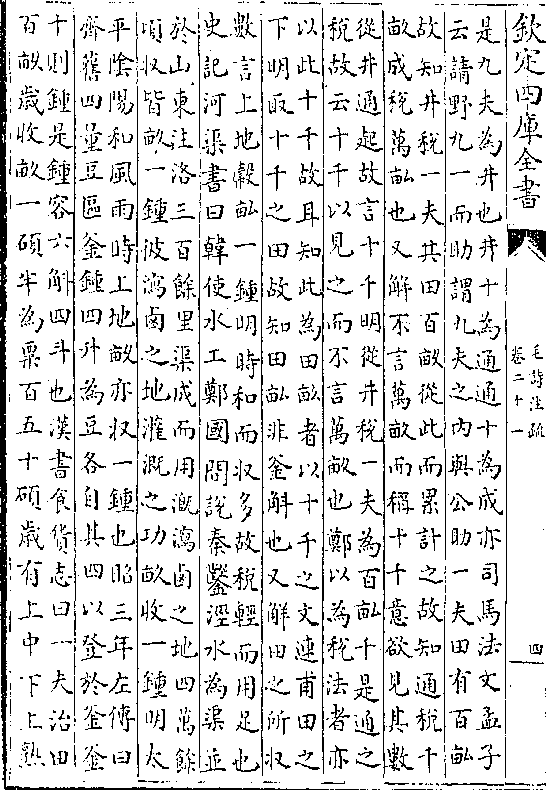 欽定四庫全書
毛詩注疏
卷二十一
四
是九夫為井也井十為通通十為成亦司馬法文孟子
云請野九一而助謂九夫之內與公助一夫田有百畝
故知井稅一夫其田百畝從此而累計之故知通稅千
畝成稅萬畝也又解不言萬畝而稱十千意欲見其數
從井通起故言十千明從井稅一夫為百畝千是通之
稅故云十千以見之而不言萬畝也鄭以為稅法者亦
以此十千故且知此為田畝者以十千之文連甫田之
下明取十千之田故知田畝非釜斛也又解田之所收
數言上地穀畝一鍾明時和而收多故稅輕而用足也
史記河渠書曰韓使水工鄭國間說秦鑿涇水為渠並
於山東注洛三百餘里渠成而用溉瀉鹵之地四萬餘
頃収皆畝一鍾彼瀉鹵之地灌溉之功畝收一鍾明太
平陰陽和風雨時上地畝亦収一鍾也昭三年左傳曰
齊舊四量豆區釜鍾四升為豆各自其四以登於釜釜
十則鍾是鍾容六斛四斗也漢書食貨志曰一夫治田
百畝歲收畝一碩半為粟百五十碩歲有上中下上熟